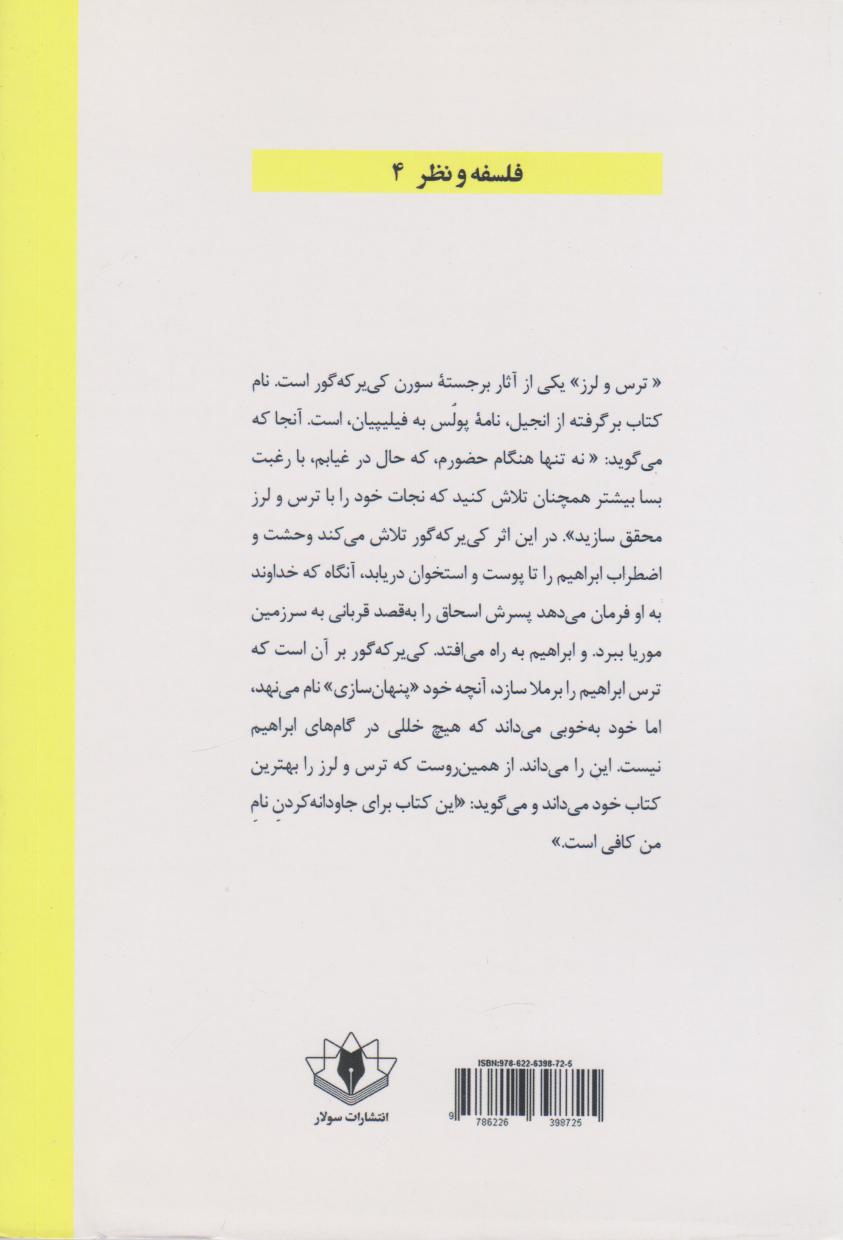 فلسفه و نظر ۴
« ترس و لرز» یکی از آثار برجستهٔ سورن کی‌یرکه‌گور است. نام
کتاب برگرفته از انجیل، نامهٔ پولُس به فیلیپیان، است. آنجا که
می‌گوید: « نه تنها هنگام حضورم، که حال در غیابم، با رغبت
بسا بیشتر همچنان تلاش کنید که نجات خود را با ترس و لرز
محقق سازید». در این اثر کی‌یرکه‌گور تلاش می‌کند وحشت و
اضطراب ابراهیم را تا پوست و استخوان دریابد، آنگاه که خداوند
به او فرمان می‌دهد پسرش اسحاق را به‌قصد قربانی به سرزمین
موریا ببرد. و ابراهیم به راه می‌افتد. کی‌یرکه‌گور بر آن است که
ترس ابراهیم را برملا سازد، آنچه خود «پنهان‌سازی» نام می‌نهد،
اما خود به‌خوبی می‌داند که هیچ خللی در گام‌های ابراهیم
نیست. این را می‌داند. از همین‌روست که ترس و لرز را بهترین
کتاب خود می‌داند و می‌گوید: «این کتاب برای جاودانه‌کردنِ نامِ
من کافی است.»
ISBN:978-622-6398-72-5
9 786226 398725
انتشارات سولار